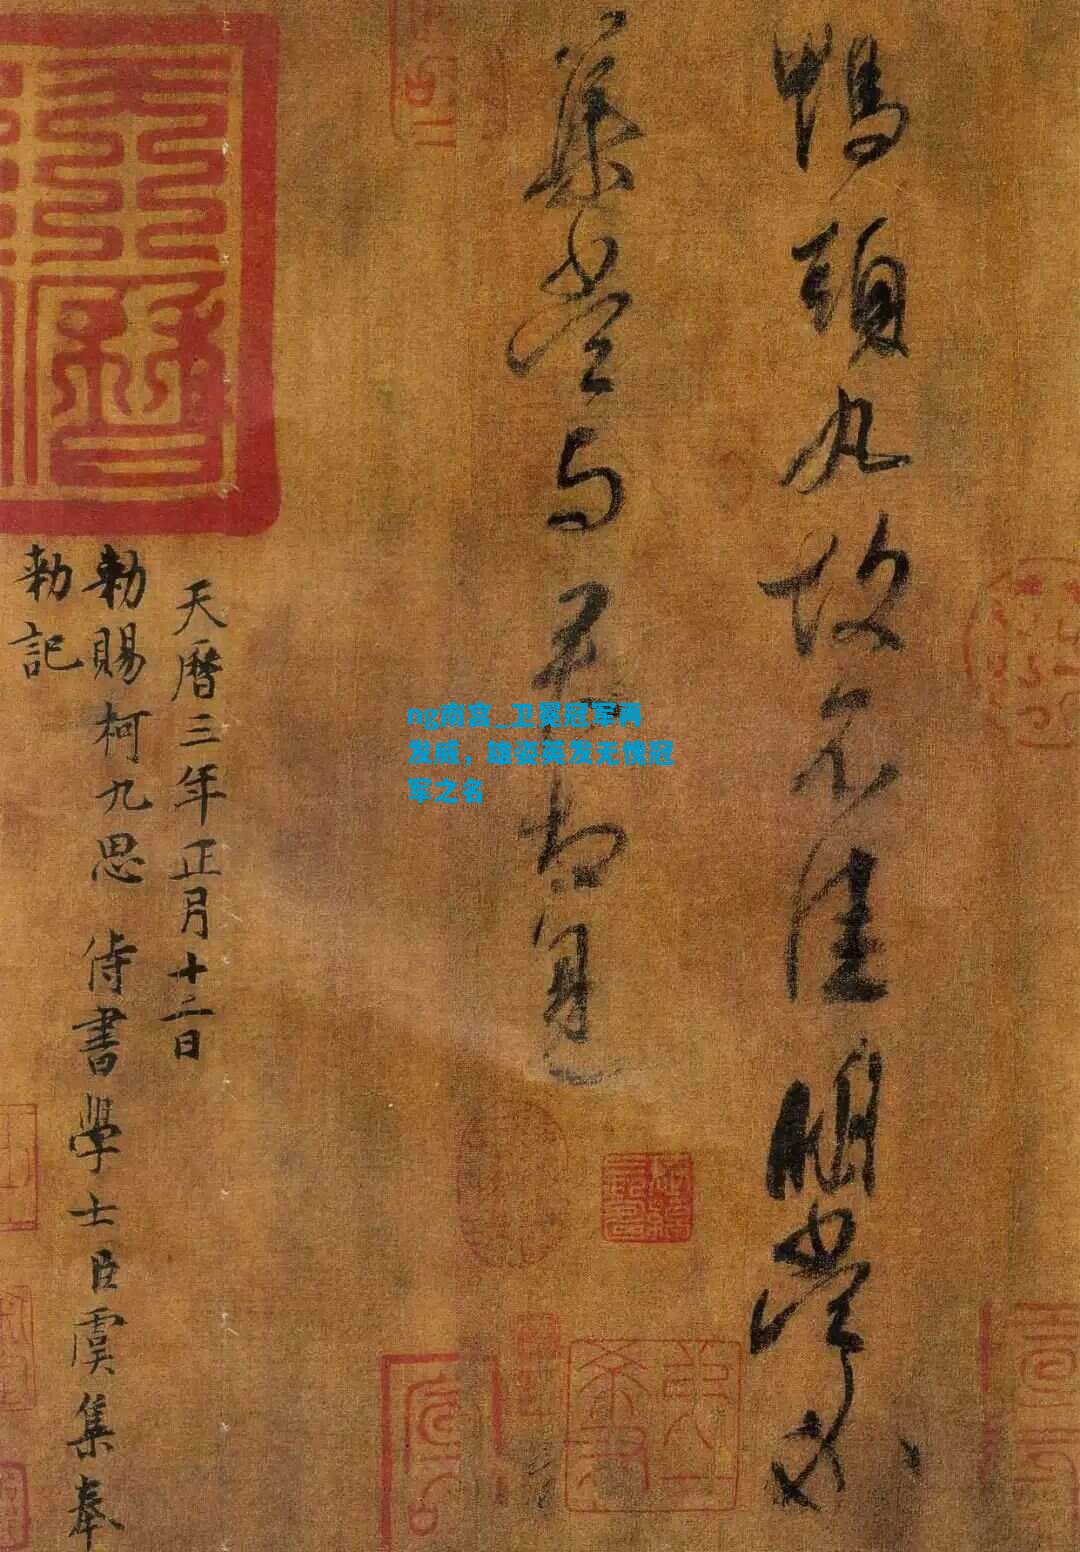 鴨頭丸故不佳明當必
集當与君相見
天曆三年正月十二日
勅賜柯九思侍書學士臣虞集奉
勅記
天曆
ng南宫_卫冕冠军再
发威，雄姿英发无愧冠
军之名